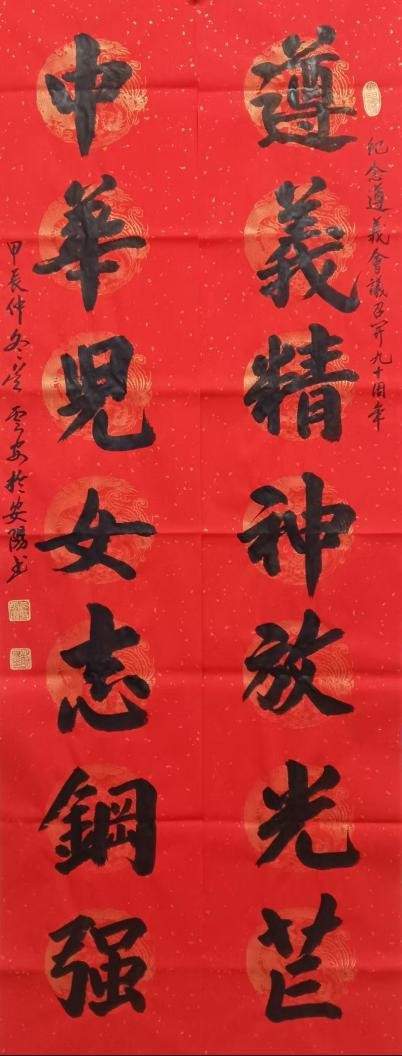 纪念遵義會議召开九十周年
遵義精神放光芒
中華兒女志鋼强
甲辰仲冬 於安陽书